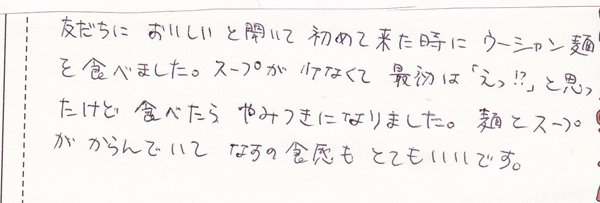 友だちに おいしい と聞いて 初めて来た時に ウーシャン麺
を食べました。スープが 少なくて 最初は「えっ!?」と思っ
たけど 食べたら やみつきになりました。麺とスープ
が からんでいて なすの食感も とてもいいです。